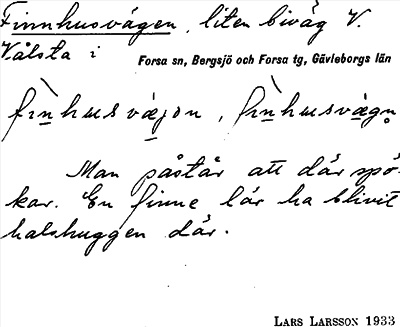 Finnhusvägen, liten biväg V.
Vålsta i Forsa sn, Bergsjö och Forsa tg, Gävleborgs län
fìnhusvæjən, fìnhusvægn̥
Man påstår att där spö-
kar. En finne lär ha blivit
halshuggen där.
LARS LARSSON 1933